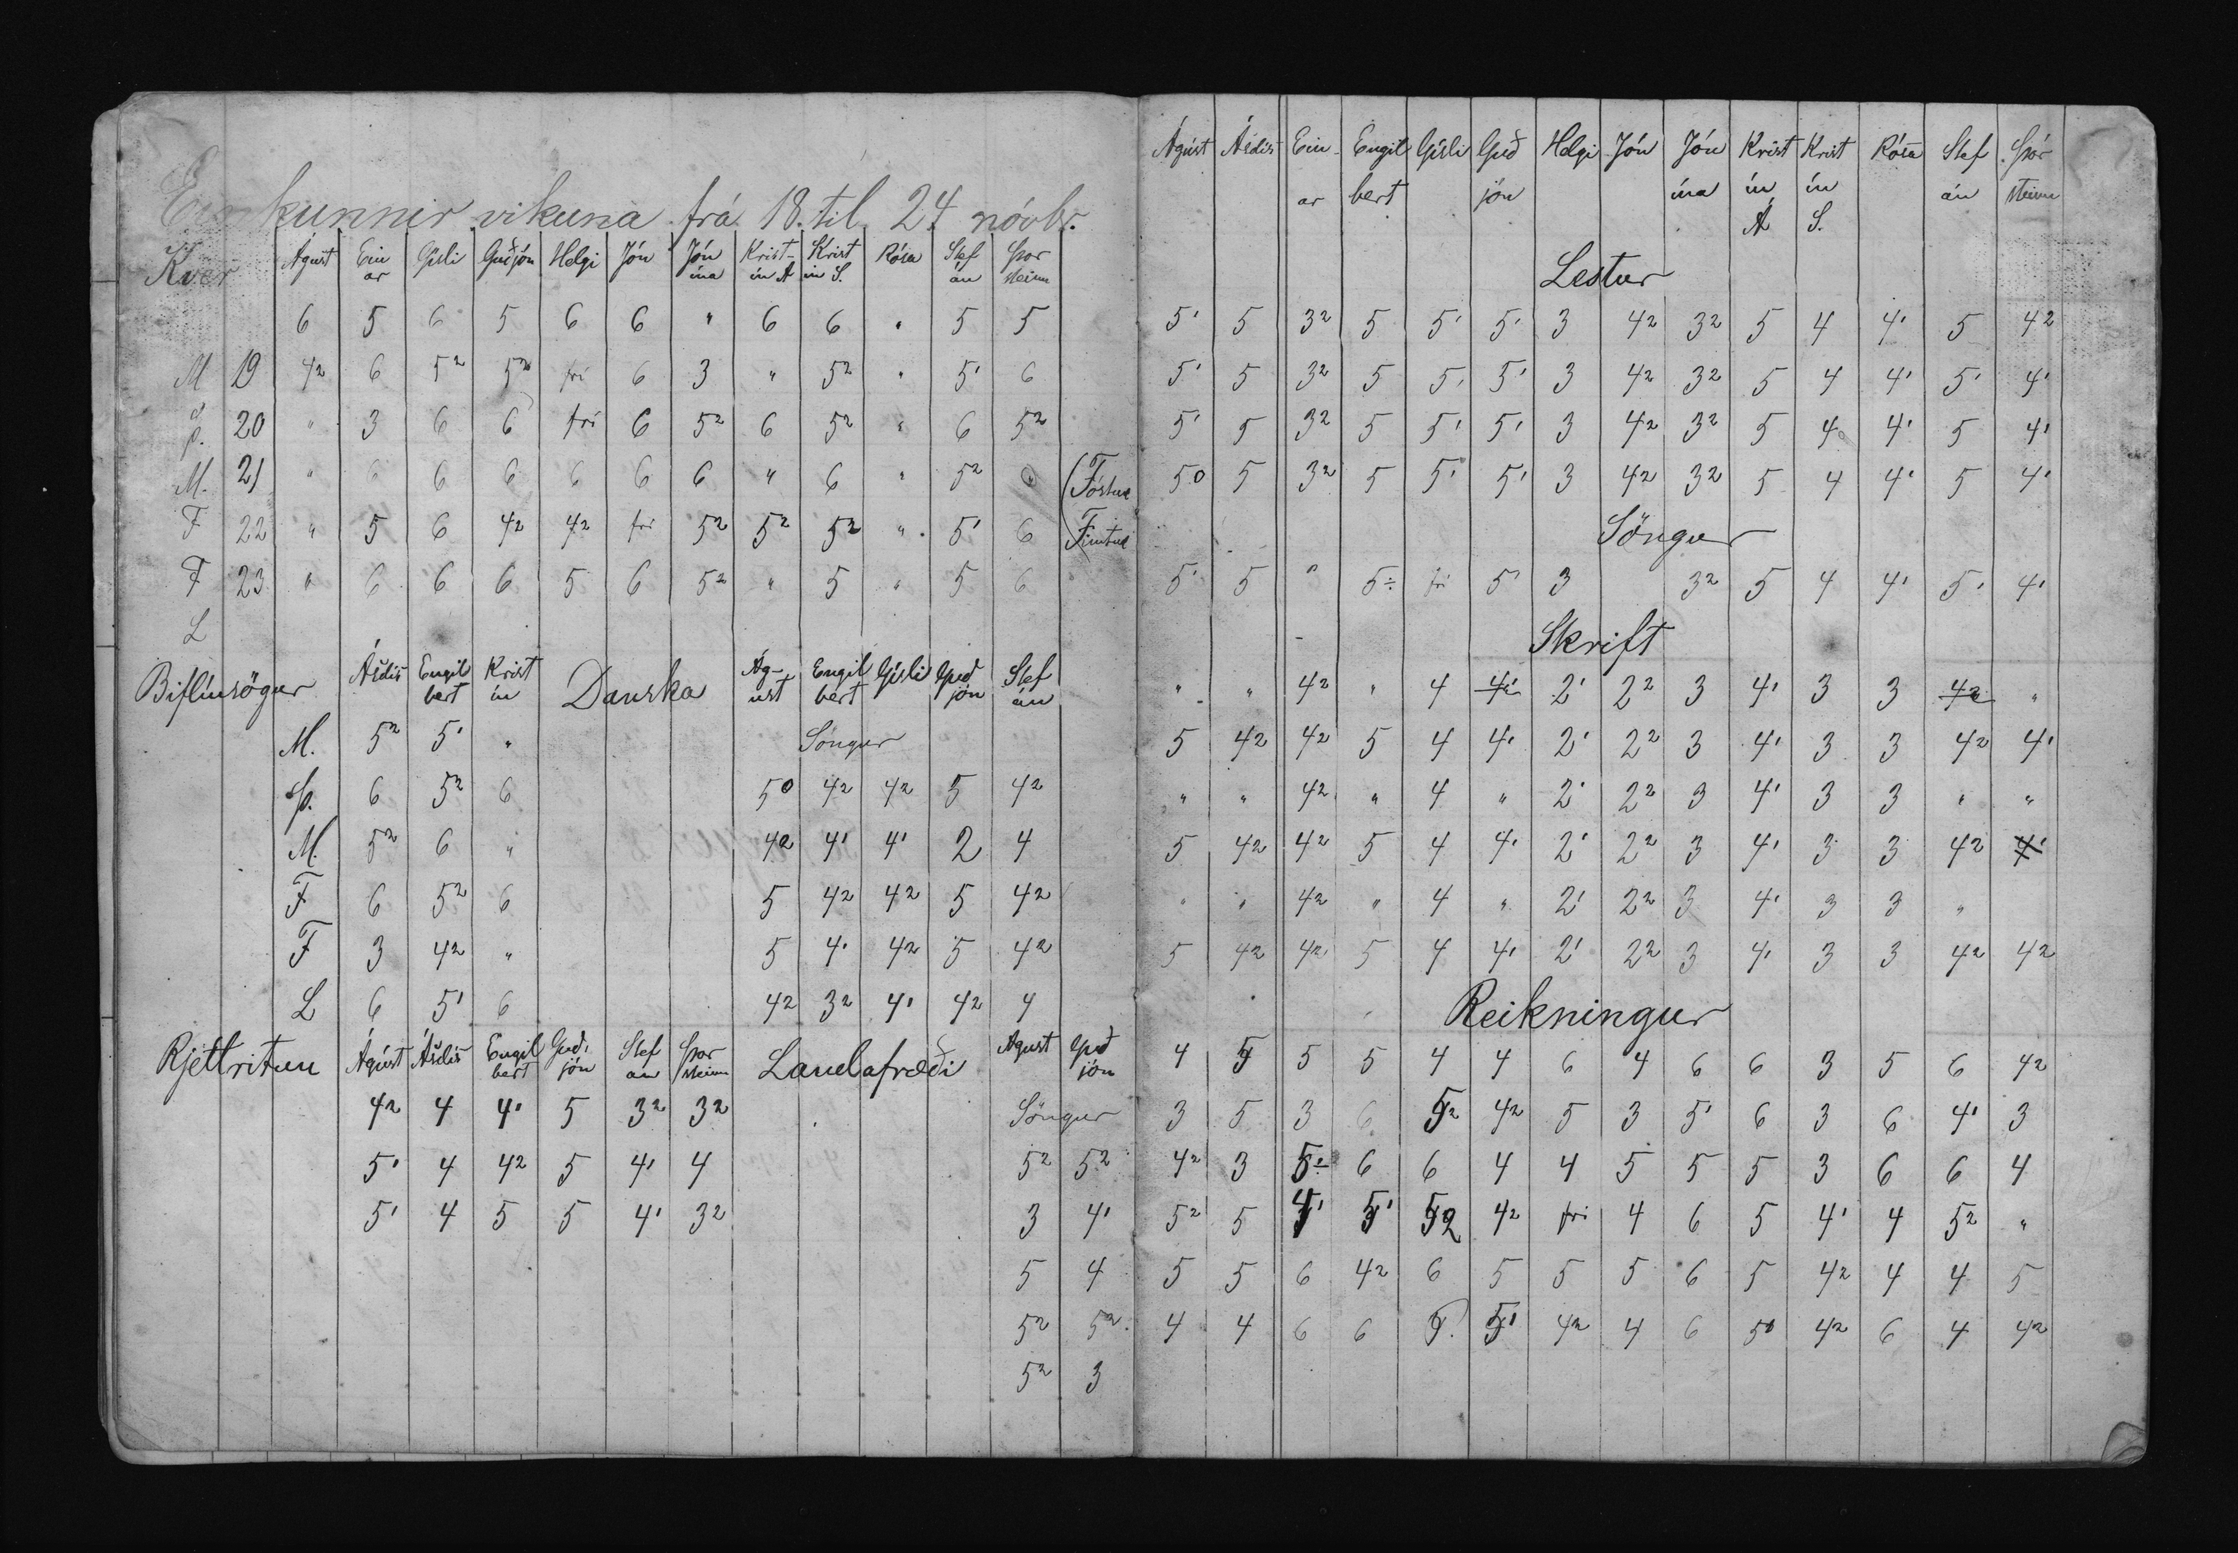 Einkunnir vikuna frá 18. til 24 nóvbr.
Kver Ágúst Einar Gísli Guðjón Helgi Jón Jónína Kristín Á Kristín S. Rósa Stefán Þorsteinn
6 5 6 5 6 6 " 6 6 " 5 5
M 19 4² 6 5² 5² frí 6 3 " 5² " 5' 6
Þ. 20 " 3 6 6 frí 6 5² 6 5² " 6 5²
M. 21 " 6 6 6 6 6 6 " 6 " 5² (Föstud
F 22 " 5 6 4² 4² frí 5² 5² 5² " 5' 6 Fimtud
F 23 " 6 6 6 5 6 5² " 5 " 5 6
L
Biflíusögur Ásdís Engilbert Kristín Danska Ágúst Engilbert Gísli Guðjón Stefán
M. 5² 5' " Söngur
Þ. 6 5² 6 5⁰ 4² 4² 5 4²
M. 5² 6 " 4² 4' 4' 2 4
F 6 5² 6 5 4² 4² 5 4²
F 3 4² " 5 4' 4² 5 4²
L 6 5' 6 4² 3² 4' 4² 4
Rjettritun Ágúst Ásdís Engilbert Guðjón Stefán Þorsteinn Landafræði Ágúst Guðjón
4² 4 4' 5 3² 3² Söngur
5' 4 4² 5 4' 4 5² 5²
5' 4 5 5 4' 3² 3 4'
5 4
5² 5²
5² 3
Ágúst Ásdís Einar Engilbert Gísli Guðjón Helgi Jón Jónína Kristín Á Kristín S. Rósa Stefán Þórsteinn
Lestur
5' 5 3² 5 5' 5' 3 4² 3² 5 4 4' 5 4²
5' 5 3² 5 5' 5' 3 4² 3² 5 4 4' 5' 4'
5' 5 3² 5 5' 5' 3 4² 3² 5 4 4' 5 4'
5⁰ 5 3² 5 5' 5' 3 4² 3² 5 4 4' 5 4'
Söngur
5' 5 " 5÷ frí 5' 3 3² 5 4 4' 5' 4'
Skrift
" " 4² " 4 4' 2' 2² 3 4' 3 3 4² "
5 4² 4² 5 4 4' 2' 2² 3 4' 3 3 4² 4'
" " 4² " 4 " 2' 2² 3 4' 3 3 " "
5 4² 4² 5 4 4' 2' 2² 3 4' 3 3 4² 4'
" " 4² " 4 " 2' 2² 3 4' 3 3 "
5 4² 4² 5 4 4' 2' 2² 3 4' 3 3 4² 4²
Reikningur
4 5 5 5 4 4 6 4 6 6 3 5 6 4²
3 5 3 6 5² 4² 5 3 5' 6 3 6 4' 3
4² 3 5÷ 6 6 4 4 5 5 5 3 6 6 4
5² 5 4' 5' 5² 4² frí 4 6 5 4' 4 5² "
5 5 6 4² 6 5 5 5 6 5 4² 4 4 5
4 4 6 6 5. 5' 4² 4 6 5⁰ 4² 6 4 4²